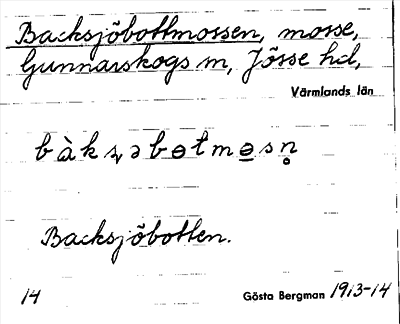 Backsjöbottmossen, mosse,
Gunnarskogs sn, Jösse hd,
Värmlands län
bàkʂəbɵtmɵ̠sn̥
Backsjöbotten.
14 Gösta Bergman 1913-14